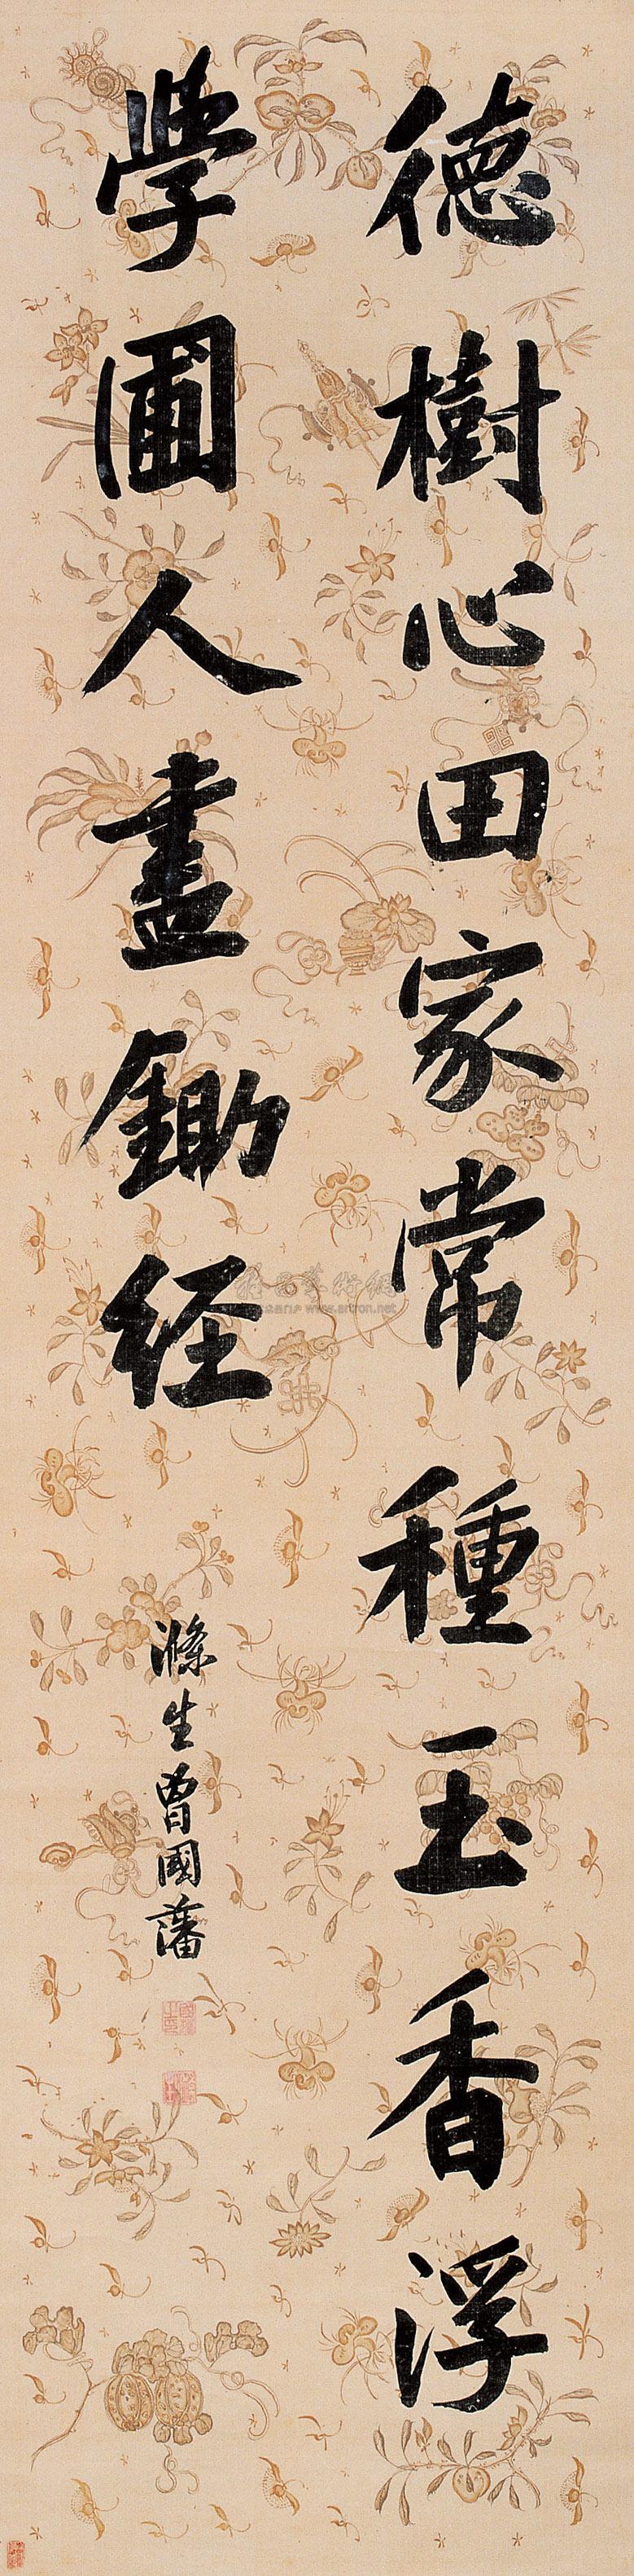 德樹心田家常種玉香浮
學圃人盡鋤經
滌生曾國藩
www.artron.net